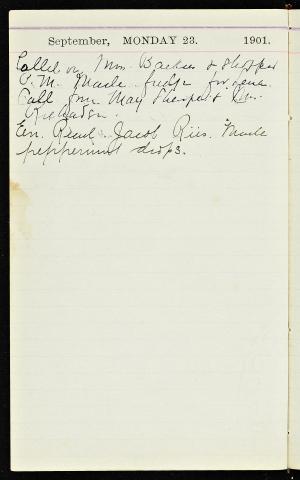 September, MONDAY 23. 1901.
Called on Mrs. Barker & shopped
P.M. Made fudge for
Call from May Shepard &
Richardson.
Eve. Read Jacob Riis. Made
peppermint drops.